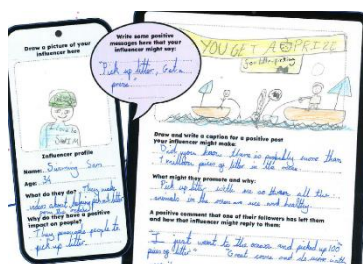 Draw a picture of your
influencer here
Influencer profile
Name: Sam
Age: 34
What do they do? They make
videos about
Why do they have a positive
impact on people?
They persuade people to
pick up litter.
Write some positive
messages here that your
influencer might say:
Pick up litter, Get a
YOU GET A PRIZE
for litter picking
Draw and write a caption for a positive post
your influencer might make:
Did you know there is probably more than
1 million pieces of litter in the
What might they promote and why:
Pick up litter with me so all the
animals in the are nice and healthy.
A positive comment that one of their followers has left them
and how influencer might reply to them:
I just went to the and picked up 100
pieces of litter" "Great come and do more with